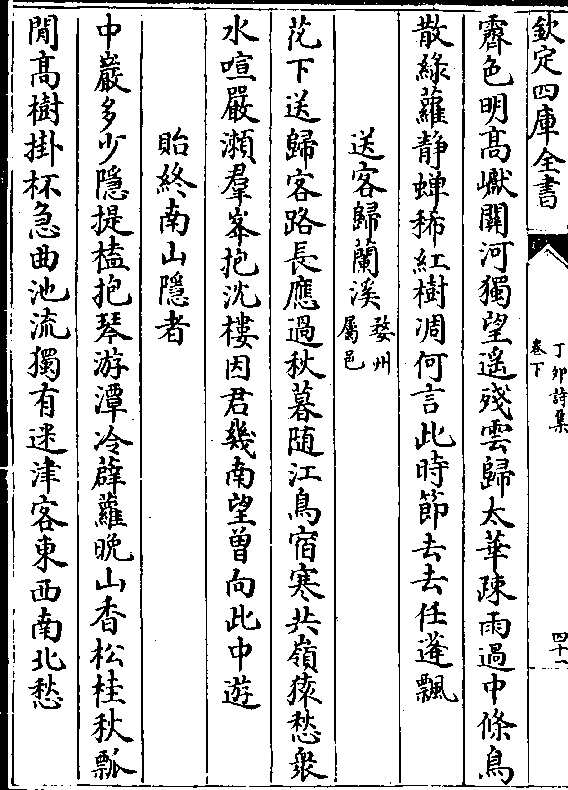 欽定四庫全書
丁卯詩集
卷下
四十一
霽色明髙巘關河獨望遥殘雲歸太華疎雨過中條鳥
散緑蘿静蟬稀紅樹凋何言此時節去去任蓬飄
送客歸蘭溪
婺州
屬邑
花下送歸客路長應過秋暮随江鳥宿寒共嶺猿愁衆
水喧嚴瀬羣峯抱沈樓因君幾南望曾向此中遊
貽終南山隱者
中巖多少隱提榼抱琴游潭冷薜蘿晩山香松桂秋瓢
閒髙樹掛杯急曲池流獨有迷津客東西南北愁